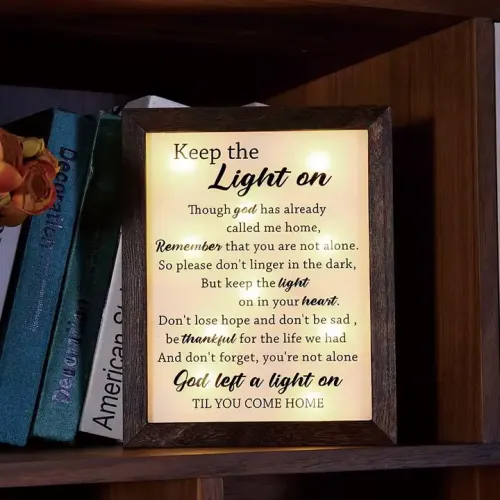 Keep the
Light on
Though god has already
called me home,
Remember that you are not alone.
So please don't linger in the dark,
But keep the light
on in your heart.
Don't lose hope and don't be sad ,
be thankful for the life we had
And don't forget, you're not alone
God left a light on
TIL YOU COME HOME
Decoration
Decoration
American St